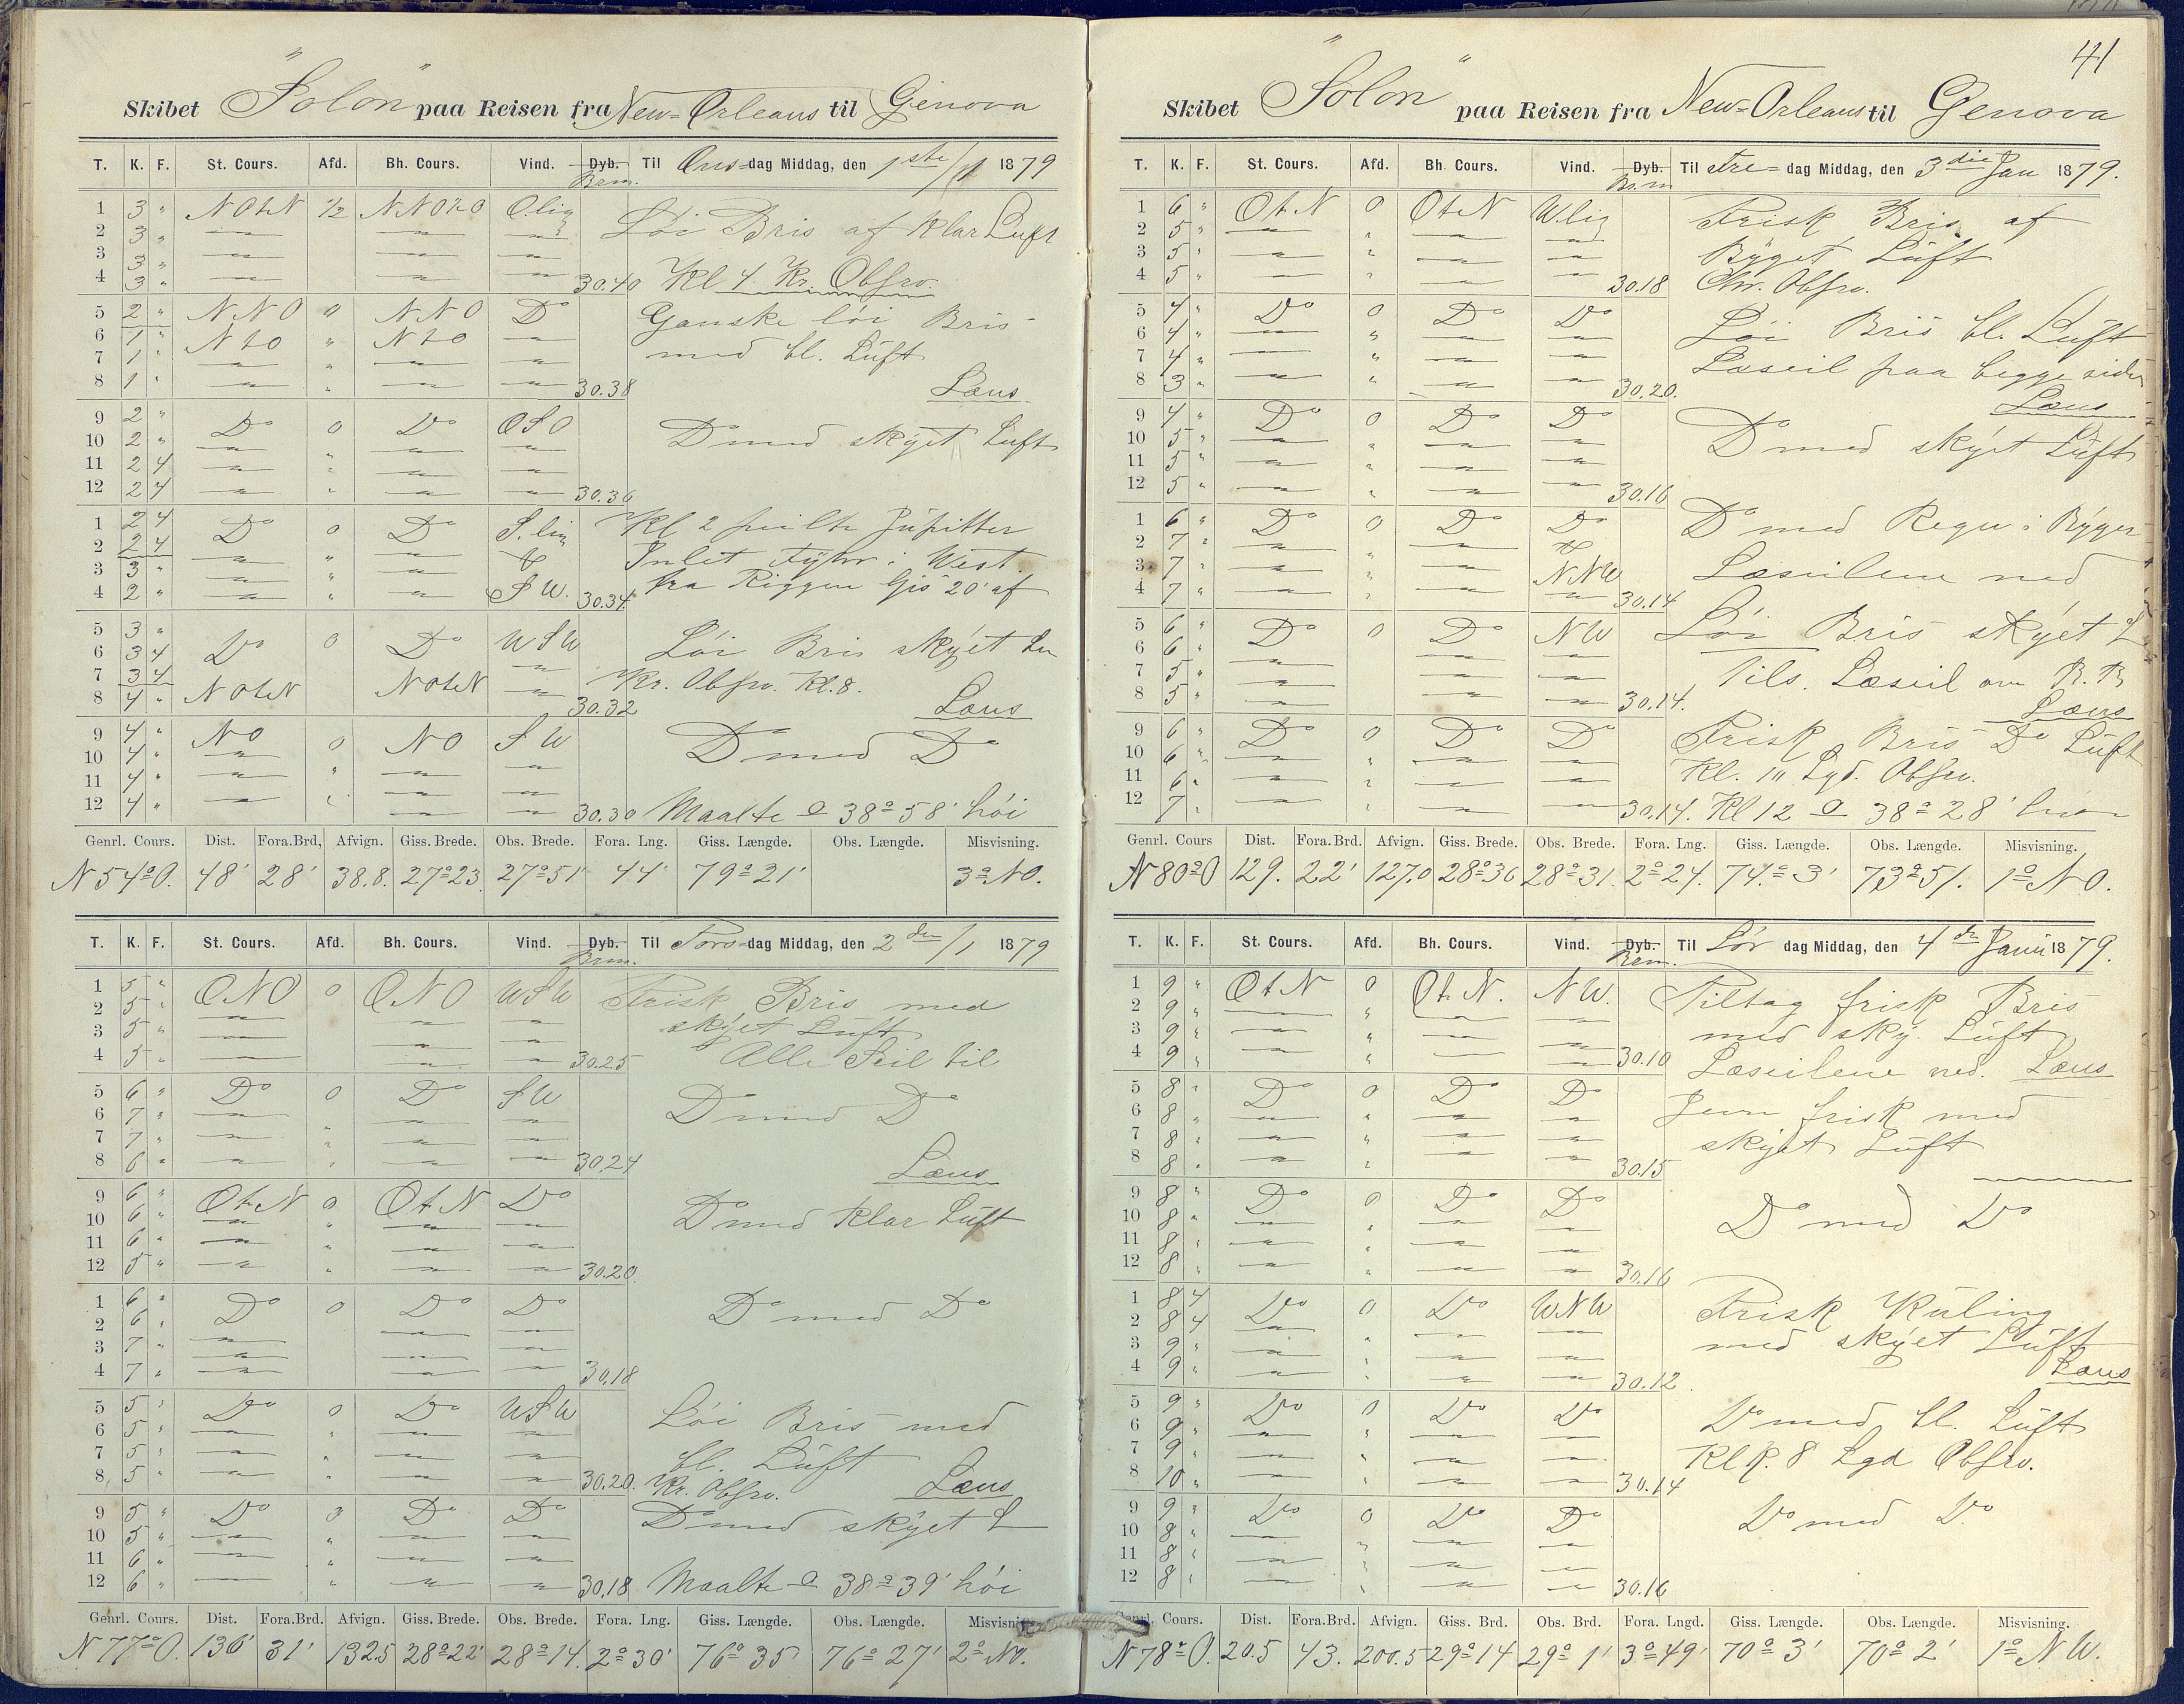 "Solon"
Skibet paa Reisen fra New-Orleans til Genova
T. K. F. St. Cours. Afd. Bh. Cours. Vind. Dyb. Brm. Til Ons-dag Middag, den 1ste/1 1879
1 3 " NOtN 1/2 NNOtO Olig Löi Bris af Klar Luft
2 3 "
3 3 "
4 3 " 30.40 Kl 4 Kr. Obsrv.
5 2 " NNO 0 NNO Do Ganske löi Bris
6 1 " NtO " NtO
7 1 " med bl. Luft
8 1 " 30.38 Læns
9 2 " Do 0 Do OSO Do med skyet Luft
10 2 "
11 2 4
12 2 4 30.36
1 2 4 Do 0 Do S.lig Kl 2 peilte Jupitter
2 2 4 Inlet Fyhr i West.
3 3 "
4 2 " SW. 30.34 fra Riggen Gis 20' af
5 3 " Do 0 Do WSW Löi Bris skyet Lu
6 3 4
7 3 4 Kr. Obsrv. Kl. 8.
8 4 " NOtN NOtN 30.32 Læns
9 4 " NO 0 NO SW Do med Do
10 4 "
11 4 "
12 4 " 30.30 Maalte 38° 58' höi
Genrl. Cours. Dist. Fora.Brd, Afvign. Giss. Brede. Obs. Brede. Fora. Lng. Giss. Længde. Obs. Længde. Misvisning.
N 54° O. 48' 28' 38.8. 27° 23. 27° 51' 44' 79° 21' 3° NO.
T. K. F. St. Cours. Afd. Bh. Cours. Vind. Dyb. Brm. Til Tors-dag Middag, den 2den/1 1879
1 5 " ONO 0 ONO WSW Frisk Bris med
2 5 " skyet Luft
3 5 "
4 5 " 30.25 Alle Seil til
5 6 " Do 0 Do SW Do med Do
6 7 "
7 7 "
8 6 " 30.24 Læns
9 6 " OtN 0 OtN Do Do med Klar Luft
10 6 "
11 6 "
12 5 " 30.20
1 6 " Do 0 Do Do Do med Do
2 6 "
3 7 "
4 7 " 30.18
5 5 " Do 0 Do WSW Löi Bris med
6 5 "
7 5 " bl. Luft
8 5 " 30.20. Kr. Obsrv. Læns
9 5 " Do 0 Do Do Do med skyet L
10 5 "
11 6 "
12 6 " 30.18 Maalte 38° 39' höi
Genrl. Cours. Dist. Fora.Brd. Afvign. Giss. Brede. Obs. Brede. Fora. Lng. Giss. Længde. Obs. Længde. Misvisning
N 77° O. 136' 31' 132.5 28° 22' 28° 14. 2° 30' 76° 35' 76° 27' 2° NO.
41
"Solon"
Skibet paa Reisen fra New-Orleans til Genova
T. K. F. St. Cours. Afd. Bh. Cours. Vind. Dyb. Brm Til Fre-dag Middag, den 3die Jan 1879.
1 6 " OtN 0 OtN W.lig Frisk Bris af
2 5 "
3 5 " Byget Luft
4 5 " 30.18 Chr. Obsrv.
5 4 " Do 0 Do Do Löi Bris bl. Luft
6 4 "
7 4 " Læseil paa begge sider
8 3 " 30.20. Læns
9 4 " Do 0 Do Do Do med skyet Luft
10 5 "
11 5 "
12 5 " 30.16
1 6 " Do 0 Do Do Do med Regn i Byger
2 7 "
3 7 " NNW Læseilene ned
4 7 " 30.14
5 6 " Do 0 Do NW Löi Bris skyet L
6 6 "
7 5 " Tils. Læseil om B.B
8 5 " 30.14. Læns
9 6 " Do 0 Do Do Frisk Bris Do Luft
10 6 "
11 6 " Kl. Lgd. Obsrv.
12 7 " 30.14. Kl 12 38° 28'
Genrl. Cours Dist. Fora.Brd. Afvign. Giss. Brede. Obs. Brede. Fora. Lng. Giss. Længde. Obs. Længde. Misvisning.
N 80° O 129. 22' 127.0 28° 36 28° 31. 2° 24. 74° 3' 73° 51. 1° NO.
T. K. F. St. Cours. Afd. Bh. Cours. Vind. Dyb. Brm. Til Lör dag Middag, den 4de Janu 1879.
1 9 " OtN 0 OtN. NW. Tiltag frisk Bris
2 9 "
3 9 " med sky. Luft
4 9 " 30.10 Læseilene ned. Læns
5 8 " Do 0 Do Do Jevn frisk med
6 8 "
7 8 " skyet Luft
8 8 " 30.15
9 8 " Do 0 Do Do Do med Do
10 8 "
11 8 "
12 8 " 30.16
1 8 4 Do 0 Do WNW Frisk Kuling
2 8 4 med skyet Luft
3 9 "
4 9 " 30.12. Læns
5 9 " Do 0 Do Do Do med bl. Luft
6 9 "
7 9 " Kl. 8 Lgd Obsrv.
8 10 " 30.14
9 9 " Do 0 Do Do Do med Do
10 8 "
11 8 "
12 8 " 30.16
Genrl. Cours. Dist. Fora.Brd. Afvign. Giss. Brd. Obs. Brd. Fora. Lngd. Giss. Længde. Obs. Længde. Misvisning.
N 78° O. 205 43. 200.5 29° 14 29° 1' 3° 49' 70° 3' 70° 2' 1° NW.